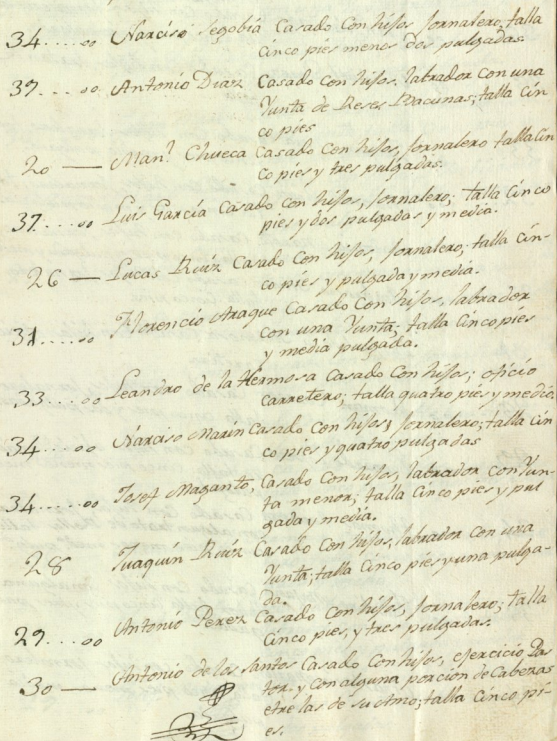 34....00 Narciso Segobia Casado con hijos, Jornalero, talla
cinco pies menos dos pulgadas.
37....00. Antonio Diaz Casado con hijos, labrador con una
Yunta de Reses Bacunas; talla cin
co pies
20 — Man.l Chueca Casado con hijos, Jornalero talla cin
co pies y tres pulgadas.
37....00 Luis García Casado con hijos, Jornalero; talla cinco
pies y dos pulgadas y media.
26 — Lucas Ruiz Casado con hijos, Jornalero; talla cin-
co pies y pulgada y media.
31.....00 Florencio Araque Casado con hijos, labrador
con una Yunta; talla cinco pies
y media pulgada.
33....00 Leandro de la Hermosa Casado con hijos; oficio
carretero; talla quatro pies y medio.
34....00 Narciso Marin Casado con hijos; Jornalero; talla cin
co pies y quatro pulgadas
34.....00 Josef Maganto, Casado con hijos, labrador con Yun-
ta menor; talla cinco pies y pul
gada y media.
28 Juaquin Ruiz Casado con hijos, labrador con una
Yunta; talla cinco pies y una pulga-
da.
29....00 Antonio Perez Casado con hijos, Jornalero; talla
cinco pies, y tres pulgadas.
30 — Antonio de los Santos Casado con hijos, ejercicio Pas
tor, y con alguna porcion de Cabezas
etre las de su Amo; talla cinco pi-
es.